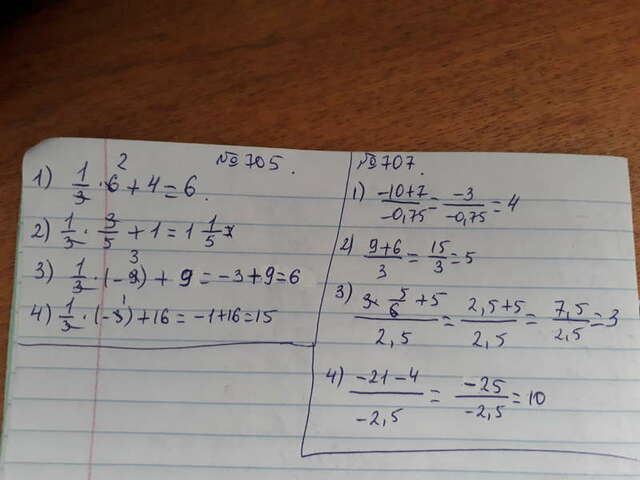 № 705.
1) 1/3 · 6 2 + 4 = 6.
2) 1/3 · 3/5 + 1 = 1 1/5
3) 1/3 · (-9 3) + 9 = -3 + 9 = 6
4) 1/3 · (-3 1) + 16 = -1 + 16 = 15
№ 707.
1) -10+7/-0,75 = -3/-0,75 = 4
2) 9+6/3 = 15/3 = 5
3) 3 · 5/6 + 5/2,5 = 2,5+5/2,5 = 7,5/2,5 = 3
4) -21-4/-2,5 = -25/-2,5 = 10